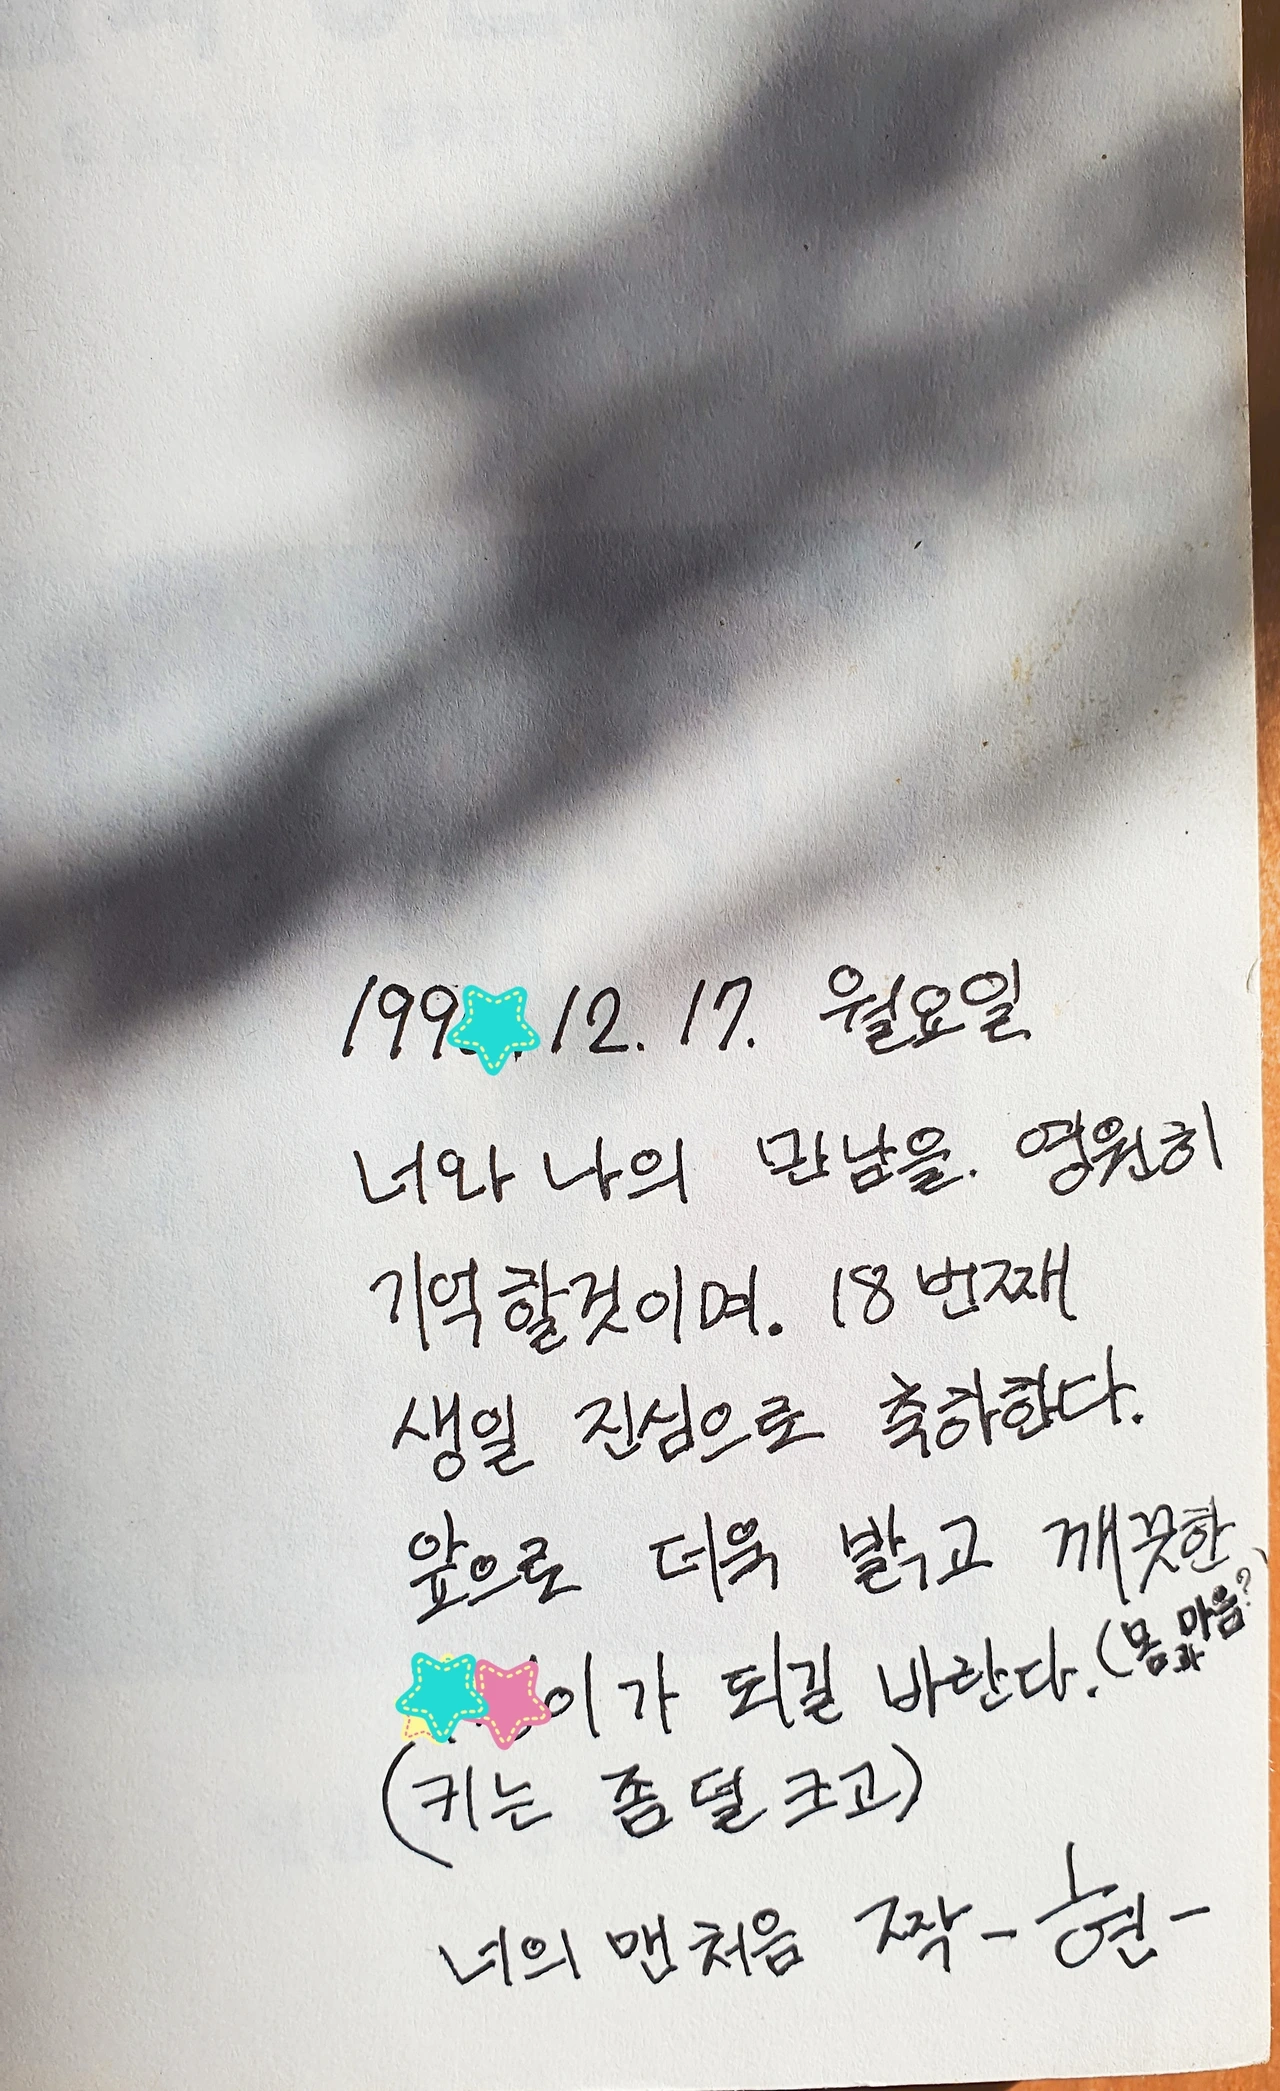 199 12. 17. 월요일
너와 나의 만남을. 영원히
기억할것이며. 18번째
생일 진심으로 축하한다.
앞으로 더욱 밝고 깨끗한
이가 되길 바란다. (몸과 마음?
(키는 좀 덜 크고)
너의 맨처음 짝 - 현 -